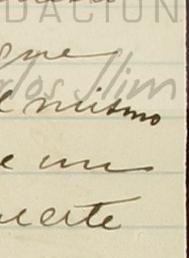 FUNDACIÓN
que
Carlos Slim
el mismo
e un
uerte